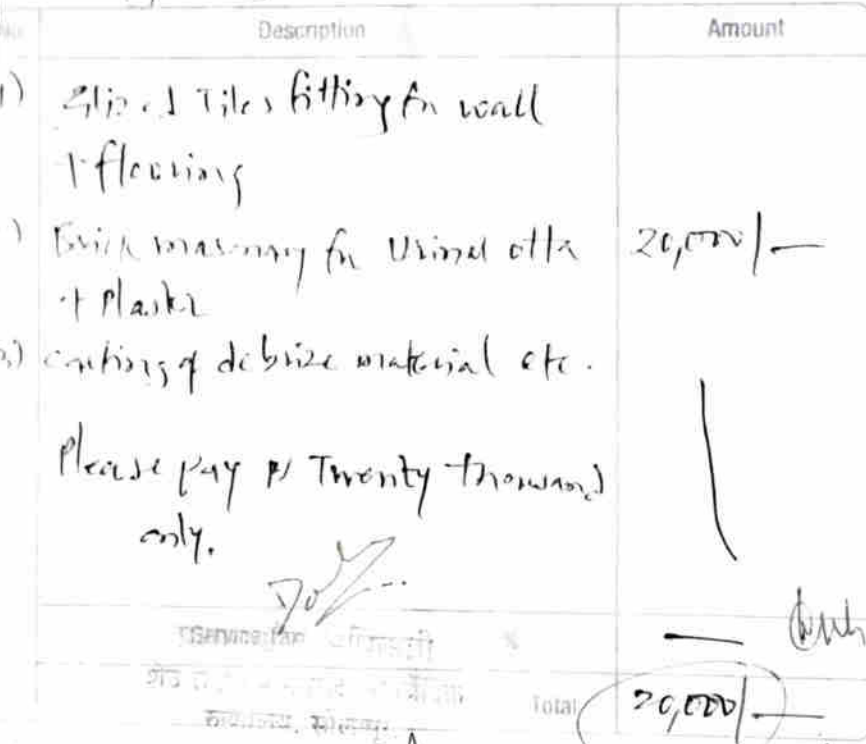 No. Description Amount
1) Glized Tiles fitting for wall
+ flooring
) Brick masonary for Urinal otta 20,000/-
+ Plaster
3) carting of debrize material etc.
Please pay Rs Twenty thousand
only.
Service Tax % —
Total 20,000/-